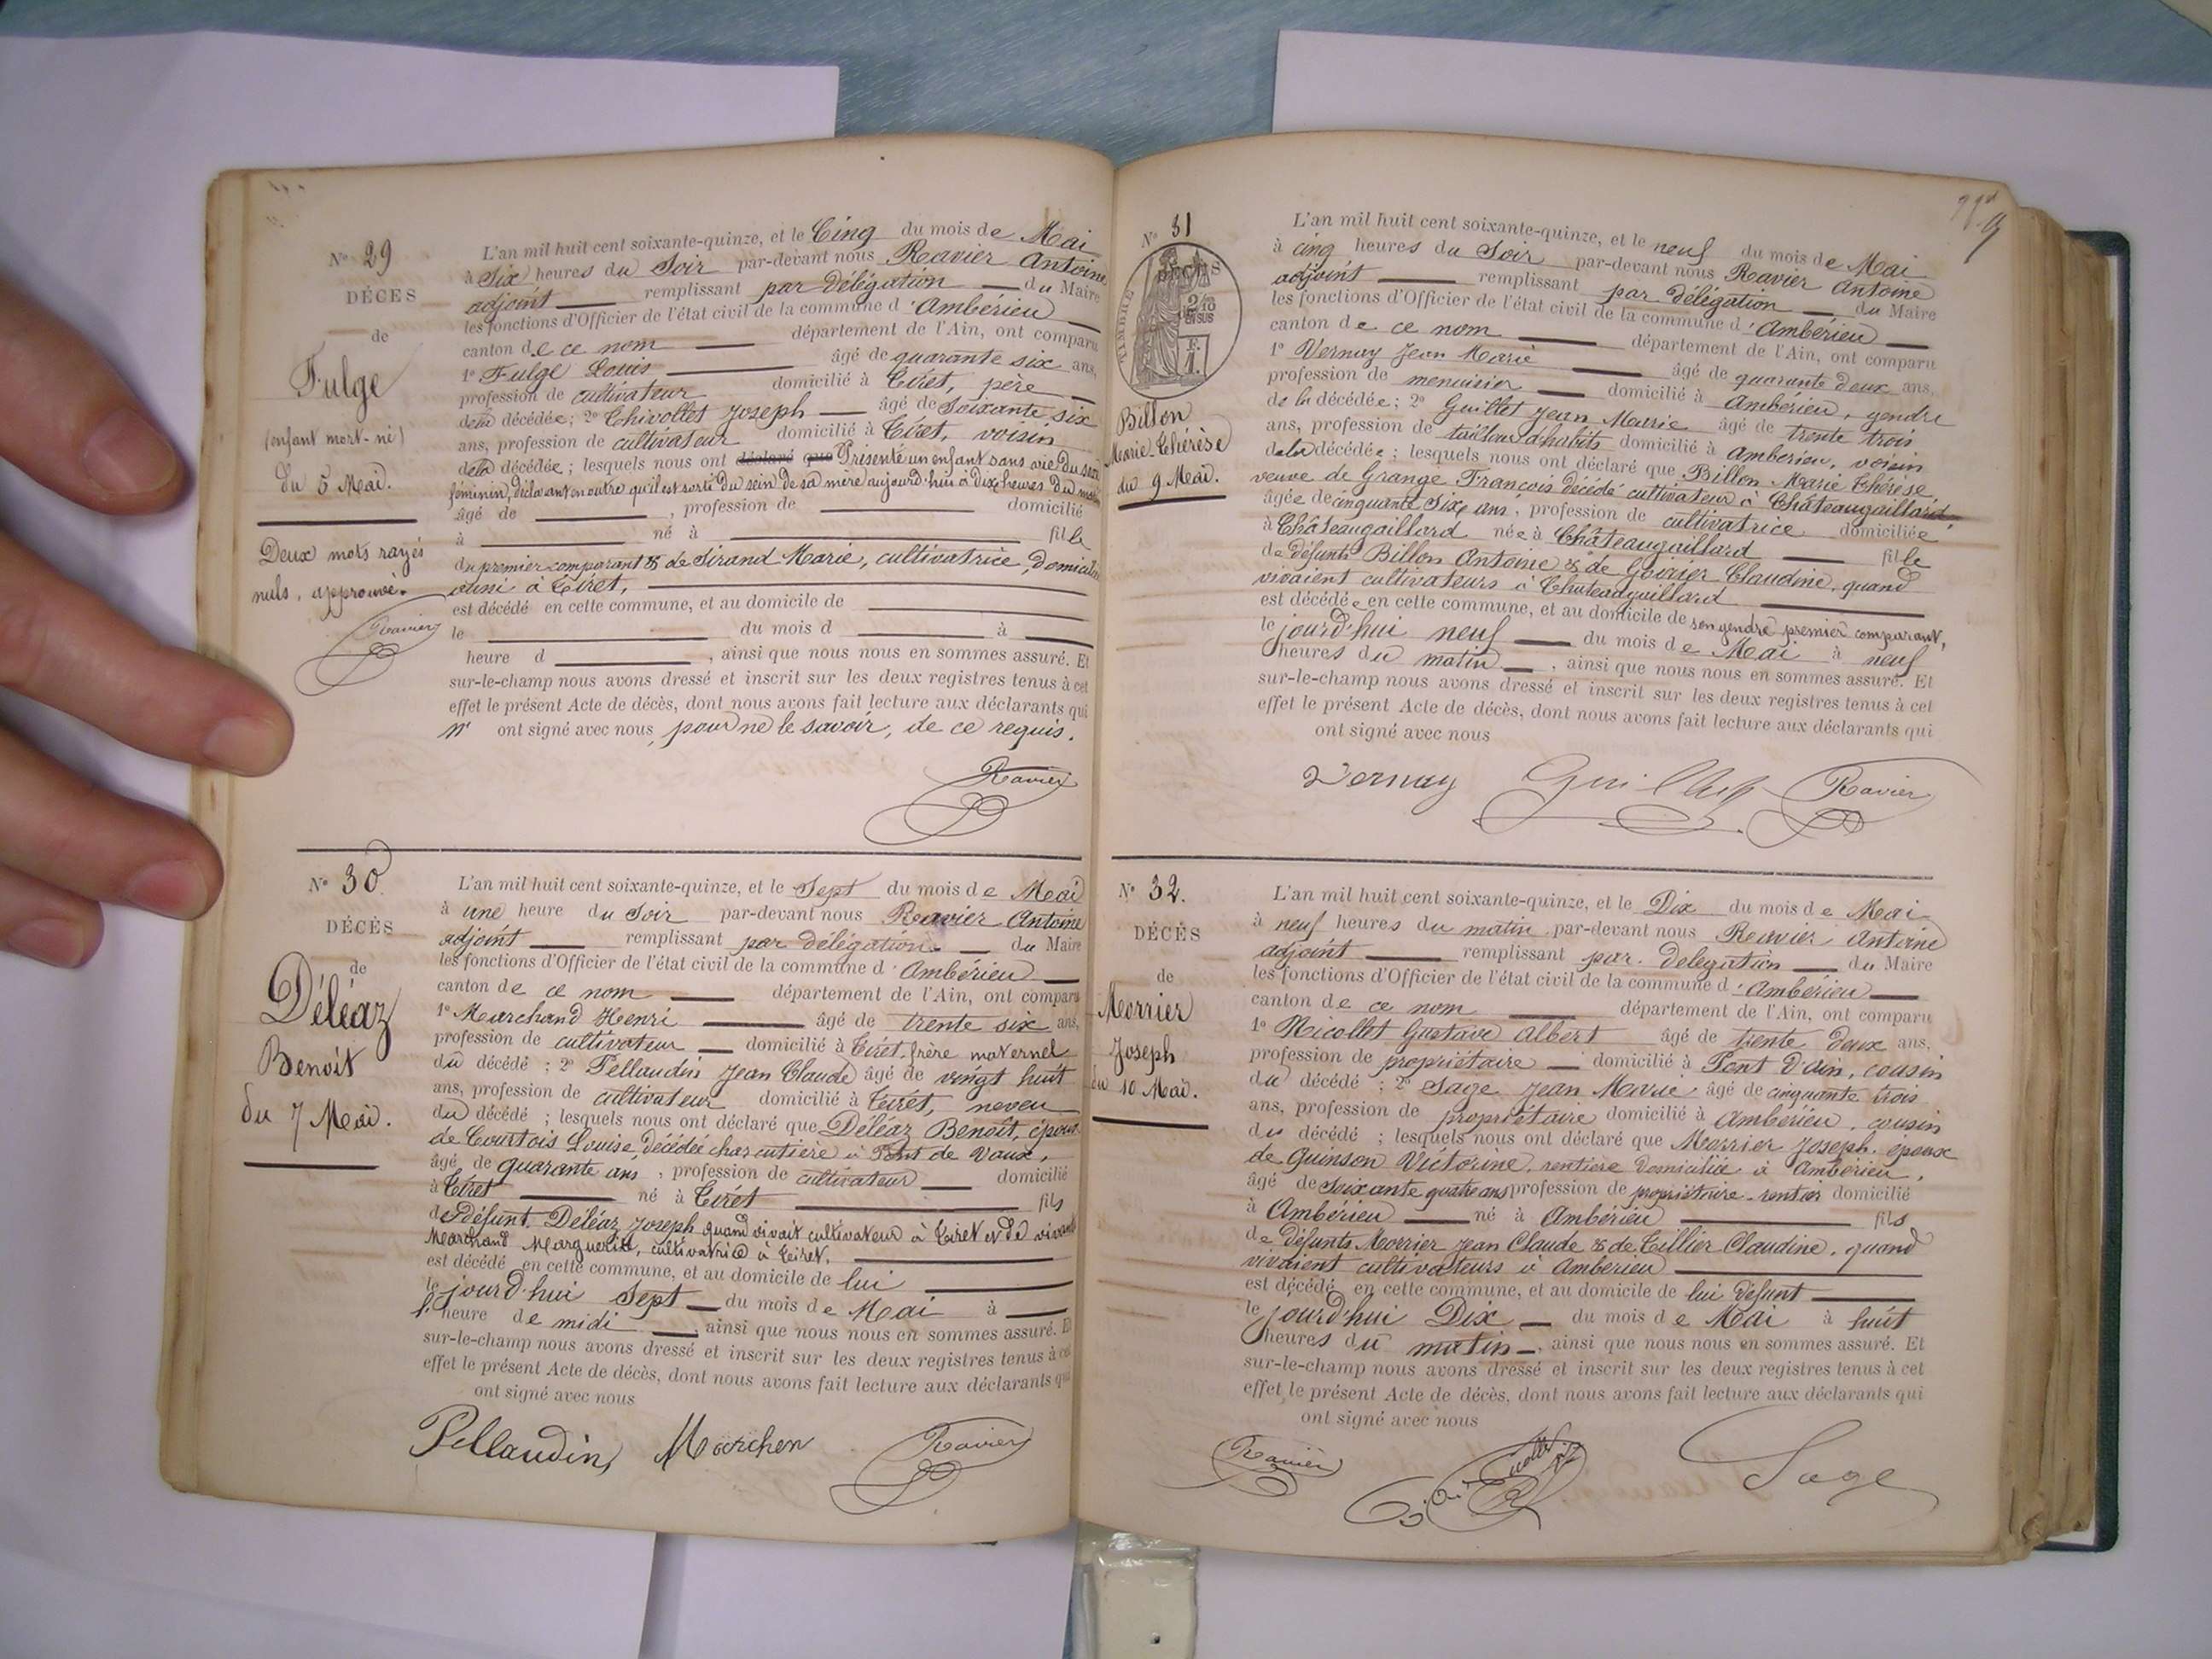 N° 29
DÉCES
de
Fulge
(enfant mort-né)
du 5 Mai.
Deux mots rayés
nuls, approuvé.
Ravier
L'an mil huit cent soixante-quinze, et le Cinq du mois de Mai
à Six heures du Soir par-devant nous Ravier Antoine
adjoint remplissant par délégation du Maire
les fonctions d'Officier de l'état civil de la commune d'Ambérieu
canton de ce nom département de l'Ain, ont comparu
1° Fulge Louis âgé de quarante six ans,
profession de cultivateur domicilié à Tiret, père
de la décédée; 2° Chivollet Joseph âgé de Soixante six
ans, profession de cultivateur domicilié à Tiret, voisin
de la décédée; lesquels nous ont déclaré que Présenté un enfant sans vie du sexe
féminin, déclarant en outre qu'il est sorti du sein de sa mère aujourd'hui à dix heures du matin
âgé de , profession de domicilié
à né à fille
du premier comparant & de Sirand Marie, cultivatrice, domiciliée
aussi à Tiret,
est décédé en cette commune, et au domicile de
le du mois d à
heure d , ainsi que nous nous en sommes assuré. Et
sur-le-champ nous avons dressé et inscrit sur les deux registres tenus à cet
effet le présent Acte de décès, dont nous avons fait lecture aux déclarants qui
n' ont signé avec nous, pour ne le savoir, de ce requis.
Ravier
N° 30
DÉCÈS
de
Déléaz
Benoît
du 7 Mai.
L'an mil huit cent soixante-quinze, et le Sept du mois de Mai
à une heure du Soir par-devant nous Ravier Antoine
adjoint remplissant par délégation du Maire
les fonctions d'Officier de l'état civil de la commune d'Ambérieu
canton de ce nom département de l'Ain, ont comparu
1° Marchand Henri âgé de trente six ans,
profession de cultivateur domicilié à Tiret, frère maternel
du décédé; 2° Pellaudin Jean Claude âgé de vingt huit
ans, profession de cultivateur domicilié à Tiret, neveu
du décédé; lesquels nous ont déclaré que Déléaz Benoît, époux
de Courtois Louise, décédée charcutière à Pont de Vaux,
âgé de quarante ans, profession de cultivateur domicilié
à Tiret né à Tiret fils
de Défunt Déléaz Joseph quand vivait cultivateur à Tiret et de vivante
Marchand Marguerite, cultivatrice à Tiret.
est décédé en cette commune, et au domicile de lui
le jourd'hui Sept du mois de Mai à
l' heure de midi, ainsi que nous nous en sommes assuré. Et
sur-le-champ nous avons dressé et inscrit sur les deux registres tenus à cet
effet le présent Acte de décès, dont nous avons fait lecture aux déclarants qui
ont signé avec nous
Pellaudin Marchen Ravier
N° 31
DÉCÈS
TIMBRE
2/10
EN SUS
Billon
Marie-Thérèse
du 9 Mai.
L'an mil huit cent soixante-quinze, et le neuf du mois de Mai
à cinq heures du Soir par-devant nous Ravier Antoine
adjoint remplissant par délégation du Maire
les fonctions d'Officier de l'état civil de la commune d'Ambérieu
canton de ce nom département de l'Ain, ont comparu
1° Vernay Jean Marie âgé de quarante deux ans,
profession de menuisier domicilié à Ambérieu, gendre
de la décédée; 2° Guillet Jean Marie âgé de trente trois
ans, profession de tailleur d'habits domicilié à Ambérieu, voisin
de la décédée; lesquels nous ont déclaré que Billon Marie Thérèse,
veuve de Grange François décédé cultivateur à Châteaugaillard,
âgée de cinquante Six ans, profession de cultivatrice domiciliée
à Châteaugaillard née à Châteaugaillard fille
de défunts Billon Antoine & de Claudine, quand
vivaient cultivateurs à Chateaugaillard
est décédée en cette commune, et au domicile de son gendre premier comparant,
le jourd'hui neuf du mois de Mai à neuf
heures du matin, ainsi que nous nous en sommes assuré. Et
sur-le-champ nous avons dressé et inscrit sur les deux registres tenus à cet
effet le présent Acte de décès, dont nous avons fait lecture aux déclarants qui
ont signé avec nous
Vernay Guillet Ravier
N° 32.
DÉCÈS
de
Morrier
Joseph
du 10 Mai.
L'an mil huit cent soixante-quinze, et le Dix du mois de Mai
à neuf heures du matin par-devant nous Ravier Antoine
adjoint remplissant par délegation du Maire
les fonctions d'Officier de l'état civil de la commune d'Ambérieu
canton de ce nom département de l'Ain, ont comparu
1° Nicollet Gustave Albert âgé de trente deux ans,
profession de propriétaire domicilié à Pont d'ain, cousin
du décédé; 2° Sage Jean Marie âgé de cinquante trois
ans, profession de propriétaire domicilié à Ambérieu, cousin
du décédé; lesquels nous ont déclaré que Morrier Joseph, époux
de Quinson Victorine, rentière domiciliée à Ambérieu,
âgé de soixante quatre ans profession de propriétaire-rentier domicilié
à Ambérieu né à Ambérieu fils
de défunts Morrier Jean Claude & de Tillier Claudine, quand
vivaient cultivateurs à Ambérieu
est décédé en cette commune, et au domicile de lui défunt
le jourd'hui Dix du mois de Mai à huit
heures du matin, ainsi que nous nous en sommes assuré. Et
sur-le-champ nous avons dressé et inscrit sur les deux registres tenus à cet
effet le présent Acte de décès, dont nous avons fait lecture aux déclarants qui
ont signé avec nous
Ravier Sage